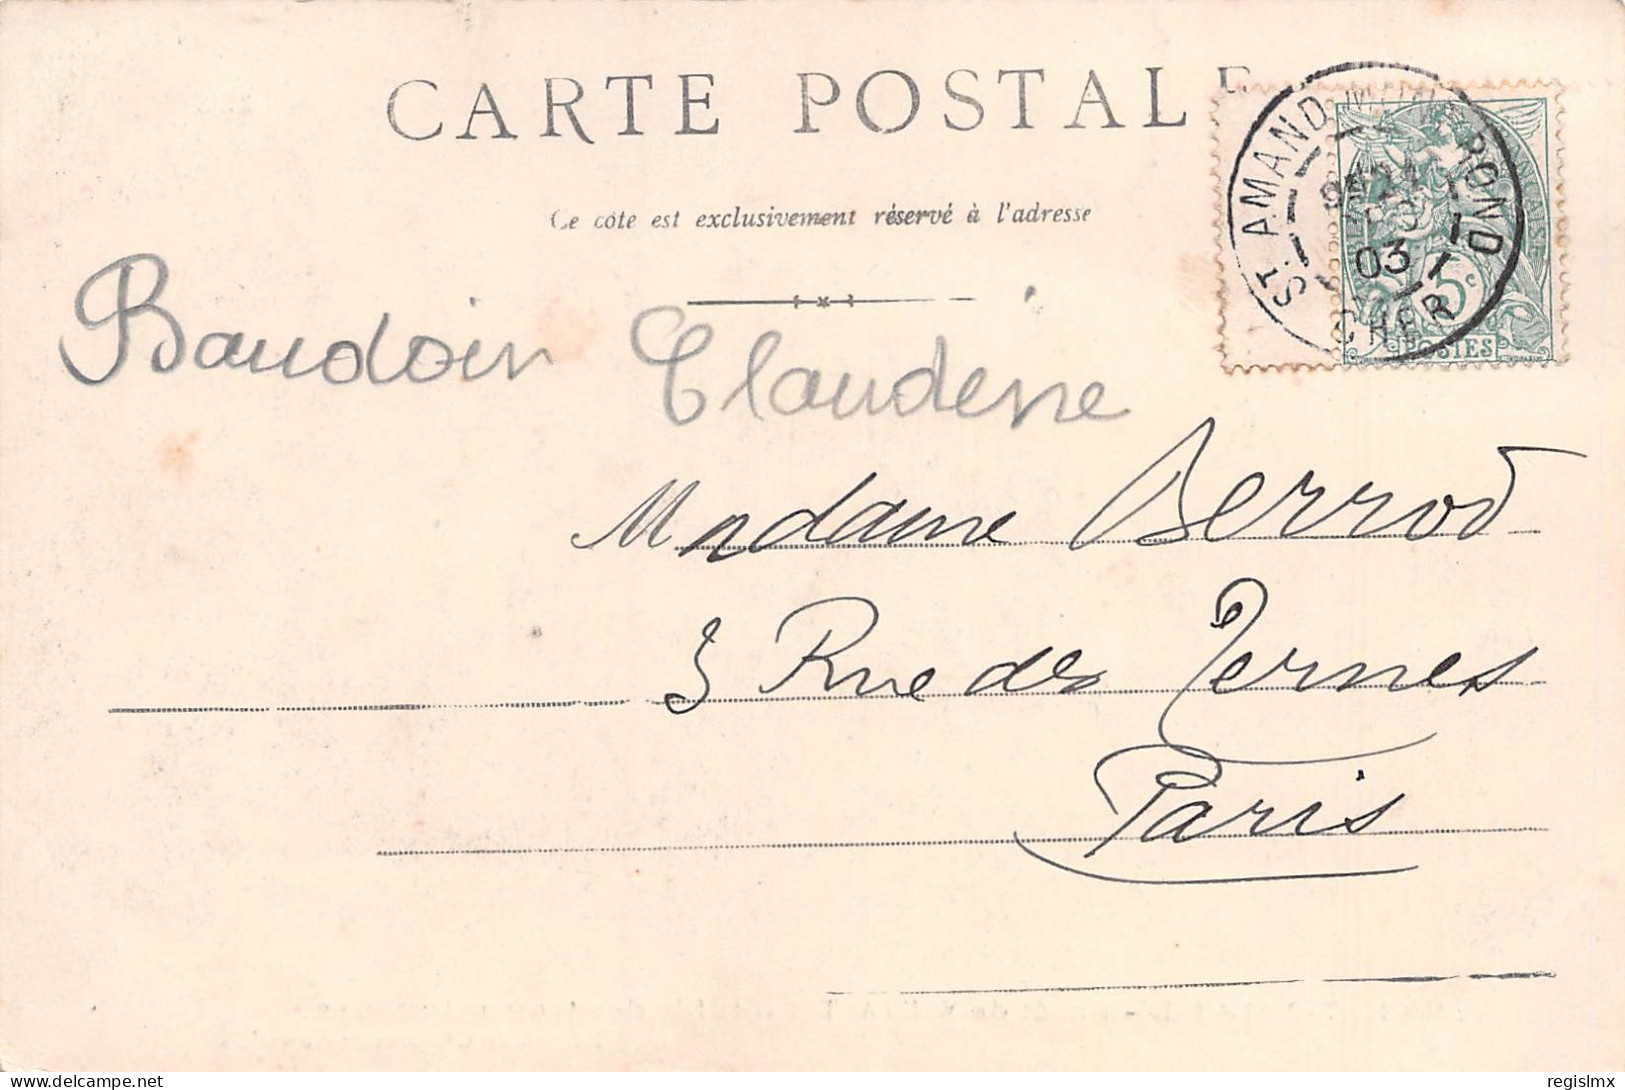 CARTE POSTALE
Ce côté est exclusivement réservé à l'adresse
ST AMAND MONTROND
03
CHER
5c
POSTES
Baudoin Claudine
Madame Berrod
3 Rue des Ternes
Paris
delcampe.net
regislmx